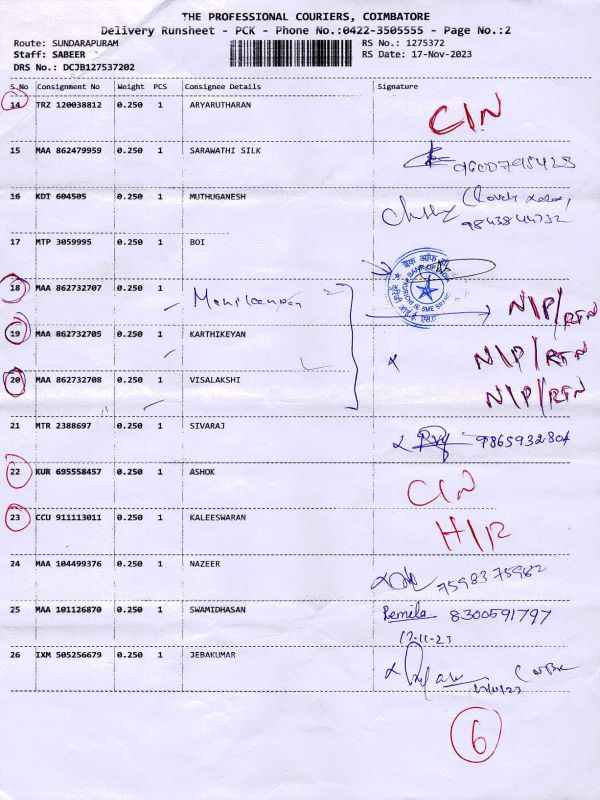 THE PROFESSIONAL COURIERS, COIMBATORE
Delivery Runsheet - PCK - Phone No.:0422-3505555 - Page No.:2
Route: SUNDARAPURAM RS No.: 1275372
Staff: SABEER RS Date: 17-Nov-2023
DRS No.: DCJB127537202
S No Consignment No Weight PCS Consignee Details Signature
14 TRZ 120038812 0.250 1 ARYARUTHARAN CIN
15 MAA 862479959 0.250 1 SARAWATHI SILK
16 KDT 604505 0.250 1 MUTHUGANESH
9843844732
17 MTP 3059995 0.250 1 BOI
18 MAA 862732707 0.250 1 Manikanpan N/P/RTN
19 MAA 862732705 0.250 1 KARTHIKEYAN N/P/RTN
20 MAA 862732708 0.250 1 VISALAKSHI N/P/RTN
21 MTR 2388697 0.250 1 SIVARAJ 9865932804
22 KUR 695558457 0.250 1 ASHOK CIN
23 CCU 911113011 0.250 1 KALEESWARAN H/R
24 MAA 104499376 0.250 1 NAZEER 7598375982
25 MAA 101126870 0.250 1 SWAMIDHASAN Remila 8300591797
17-11-23
26 IXM 505256679 0.250 1 JEBAKUMAR
6